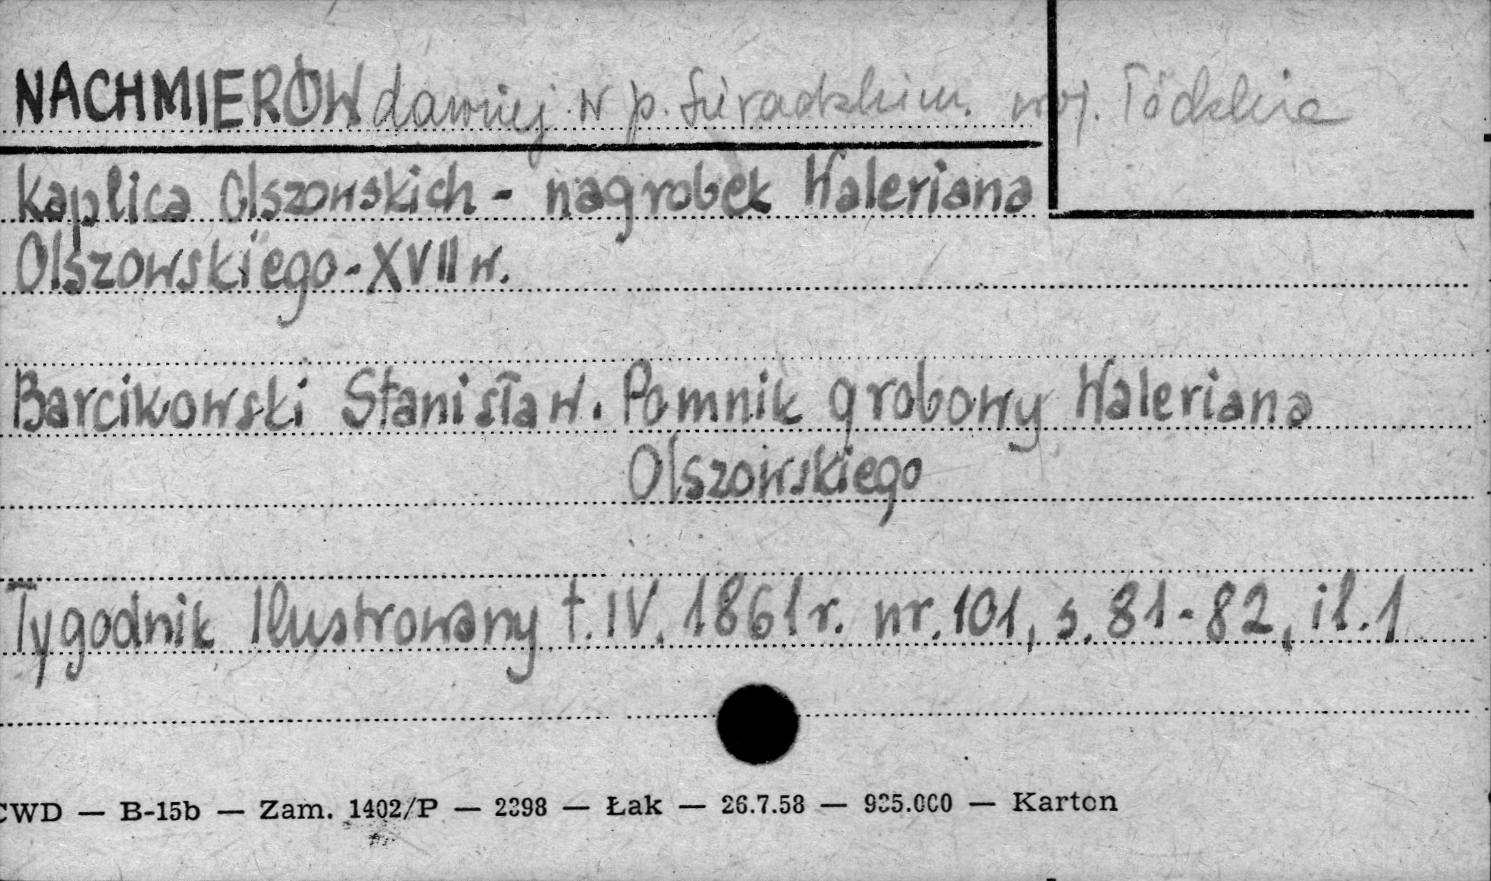 NACHMIERÓW dawniej w p. Sieradzkim. woj. Łódzkie
kaplica Olszowskich - nagrobek Waleriana
Olszowskiego - XVII w.
Barcikowski Stanisław. Pomnik grobowy Waleriana
Olszowskiego
Tygodnik Ilustrowany t. IV. 1861 r. nr. 101, s. 81-82, il. 1
CWD — B-15b — Zam. 1402/P — 2398 — Łak — 26.7.58 — 935.000 — Karton